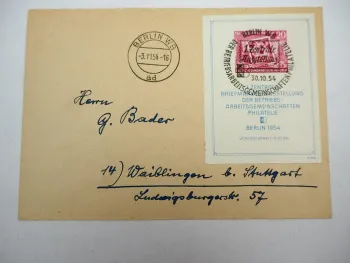 BERLIN W8
-3.11.54-16
ad
BERLIN W8
30.10.54
ZENTRALE
BRIEFMARKENAUSSTELLUNG
DER BETRIEBS-
ARBEITSGEMEINSCHAFTEN
PHILATELIE
BERLIN 1954
Herrn
G. Bader
14) Waiblingen b. Stuttgart
Ludwigsburgerstr. 57